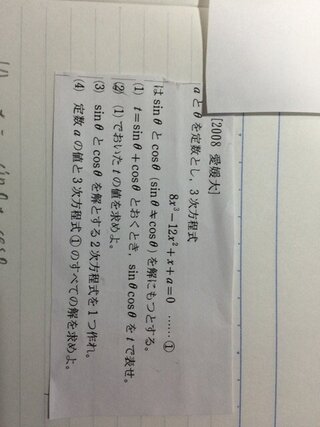 [2008 愛媛大]
aとθを定数とし，3次方程式
8x³−12x²+x+a=0 ……①
はsinθとcosθ（sinθ≠cosθ）を解にもつとする。
(1) t=sinθ+cosθとおくとき，sinθcosθをtで表せ。
(2) (1)でおいたtの値を求めよ。
(3) sinθとcosθを解とする2次方程式を1つ作れ。
(4) 定数aの値と3次方程式①のすべての解を求めよ。